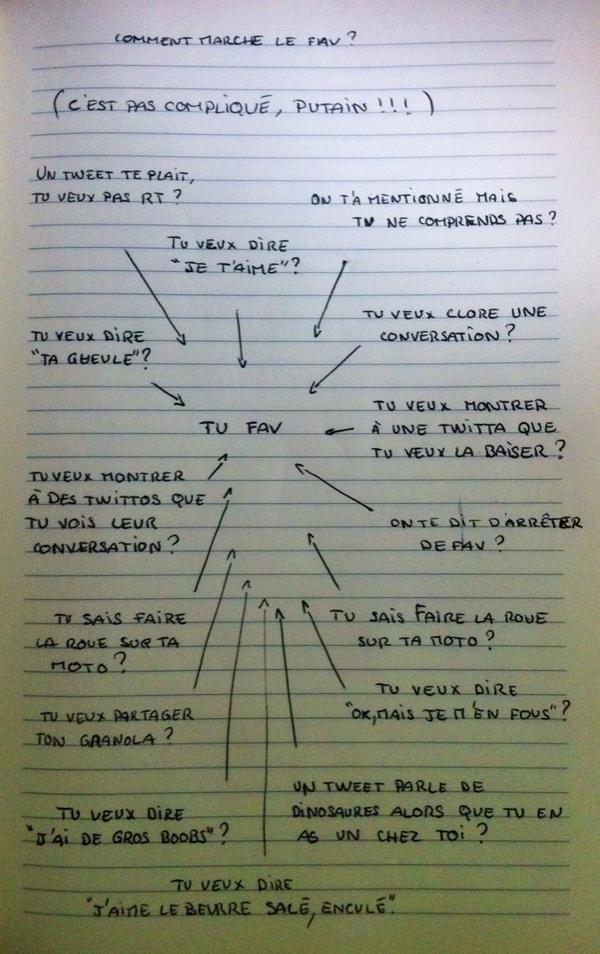 COMMENT MARCHE LE FAV ?
(C'EST PAS COMPLIQUÉ, PUTAIN !!!)
UN TWEET TE PLAIT,
TU VEUX PAS RT ?
ON T'A MENTIONNÉ MAIS
TU NE COMPRENDS PAS ?
TU VEUX DIRE
"JE T'AIME" ?
TU VEUX CLORE UNE
CONVERSATION ?
TU VEUX DIRE
"TA GUEULE" ?
TU VEUX MONTRER
À UNE TWITTA QUE
TU VEUX LA BAISER ?
TU FAV
TU VEUX MONTRER
À DES TWITTOS QUE
TU VOIS LEUR
CONVERSATION ?
ON TE DIT D'ARRÊTER
DE FAV ?
TU SAIS FAIRE
LA ROUE SUR TA
MOTO ?
TU SAIS FAIRE LA ROUE
SUR TA MOTO ?
TU VEUX DIRE
"OK, MAIS JE M'EN FOUS" ?
TU VEUX PARTAGER
TON GRANOLA ?
UN TWEET PARLE DE
DINOSAURES ALORS QUE TU EN
AS UN CHEZ TOI ?
TU VEUX DIRE
"J'AI DE GROS BOOBS" ?
TU VEUX DIRE
"J'AIME LE BEURRE SALÉ, ENCULÉ".